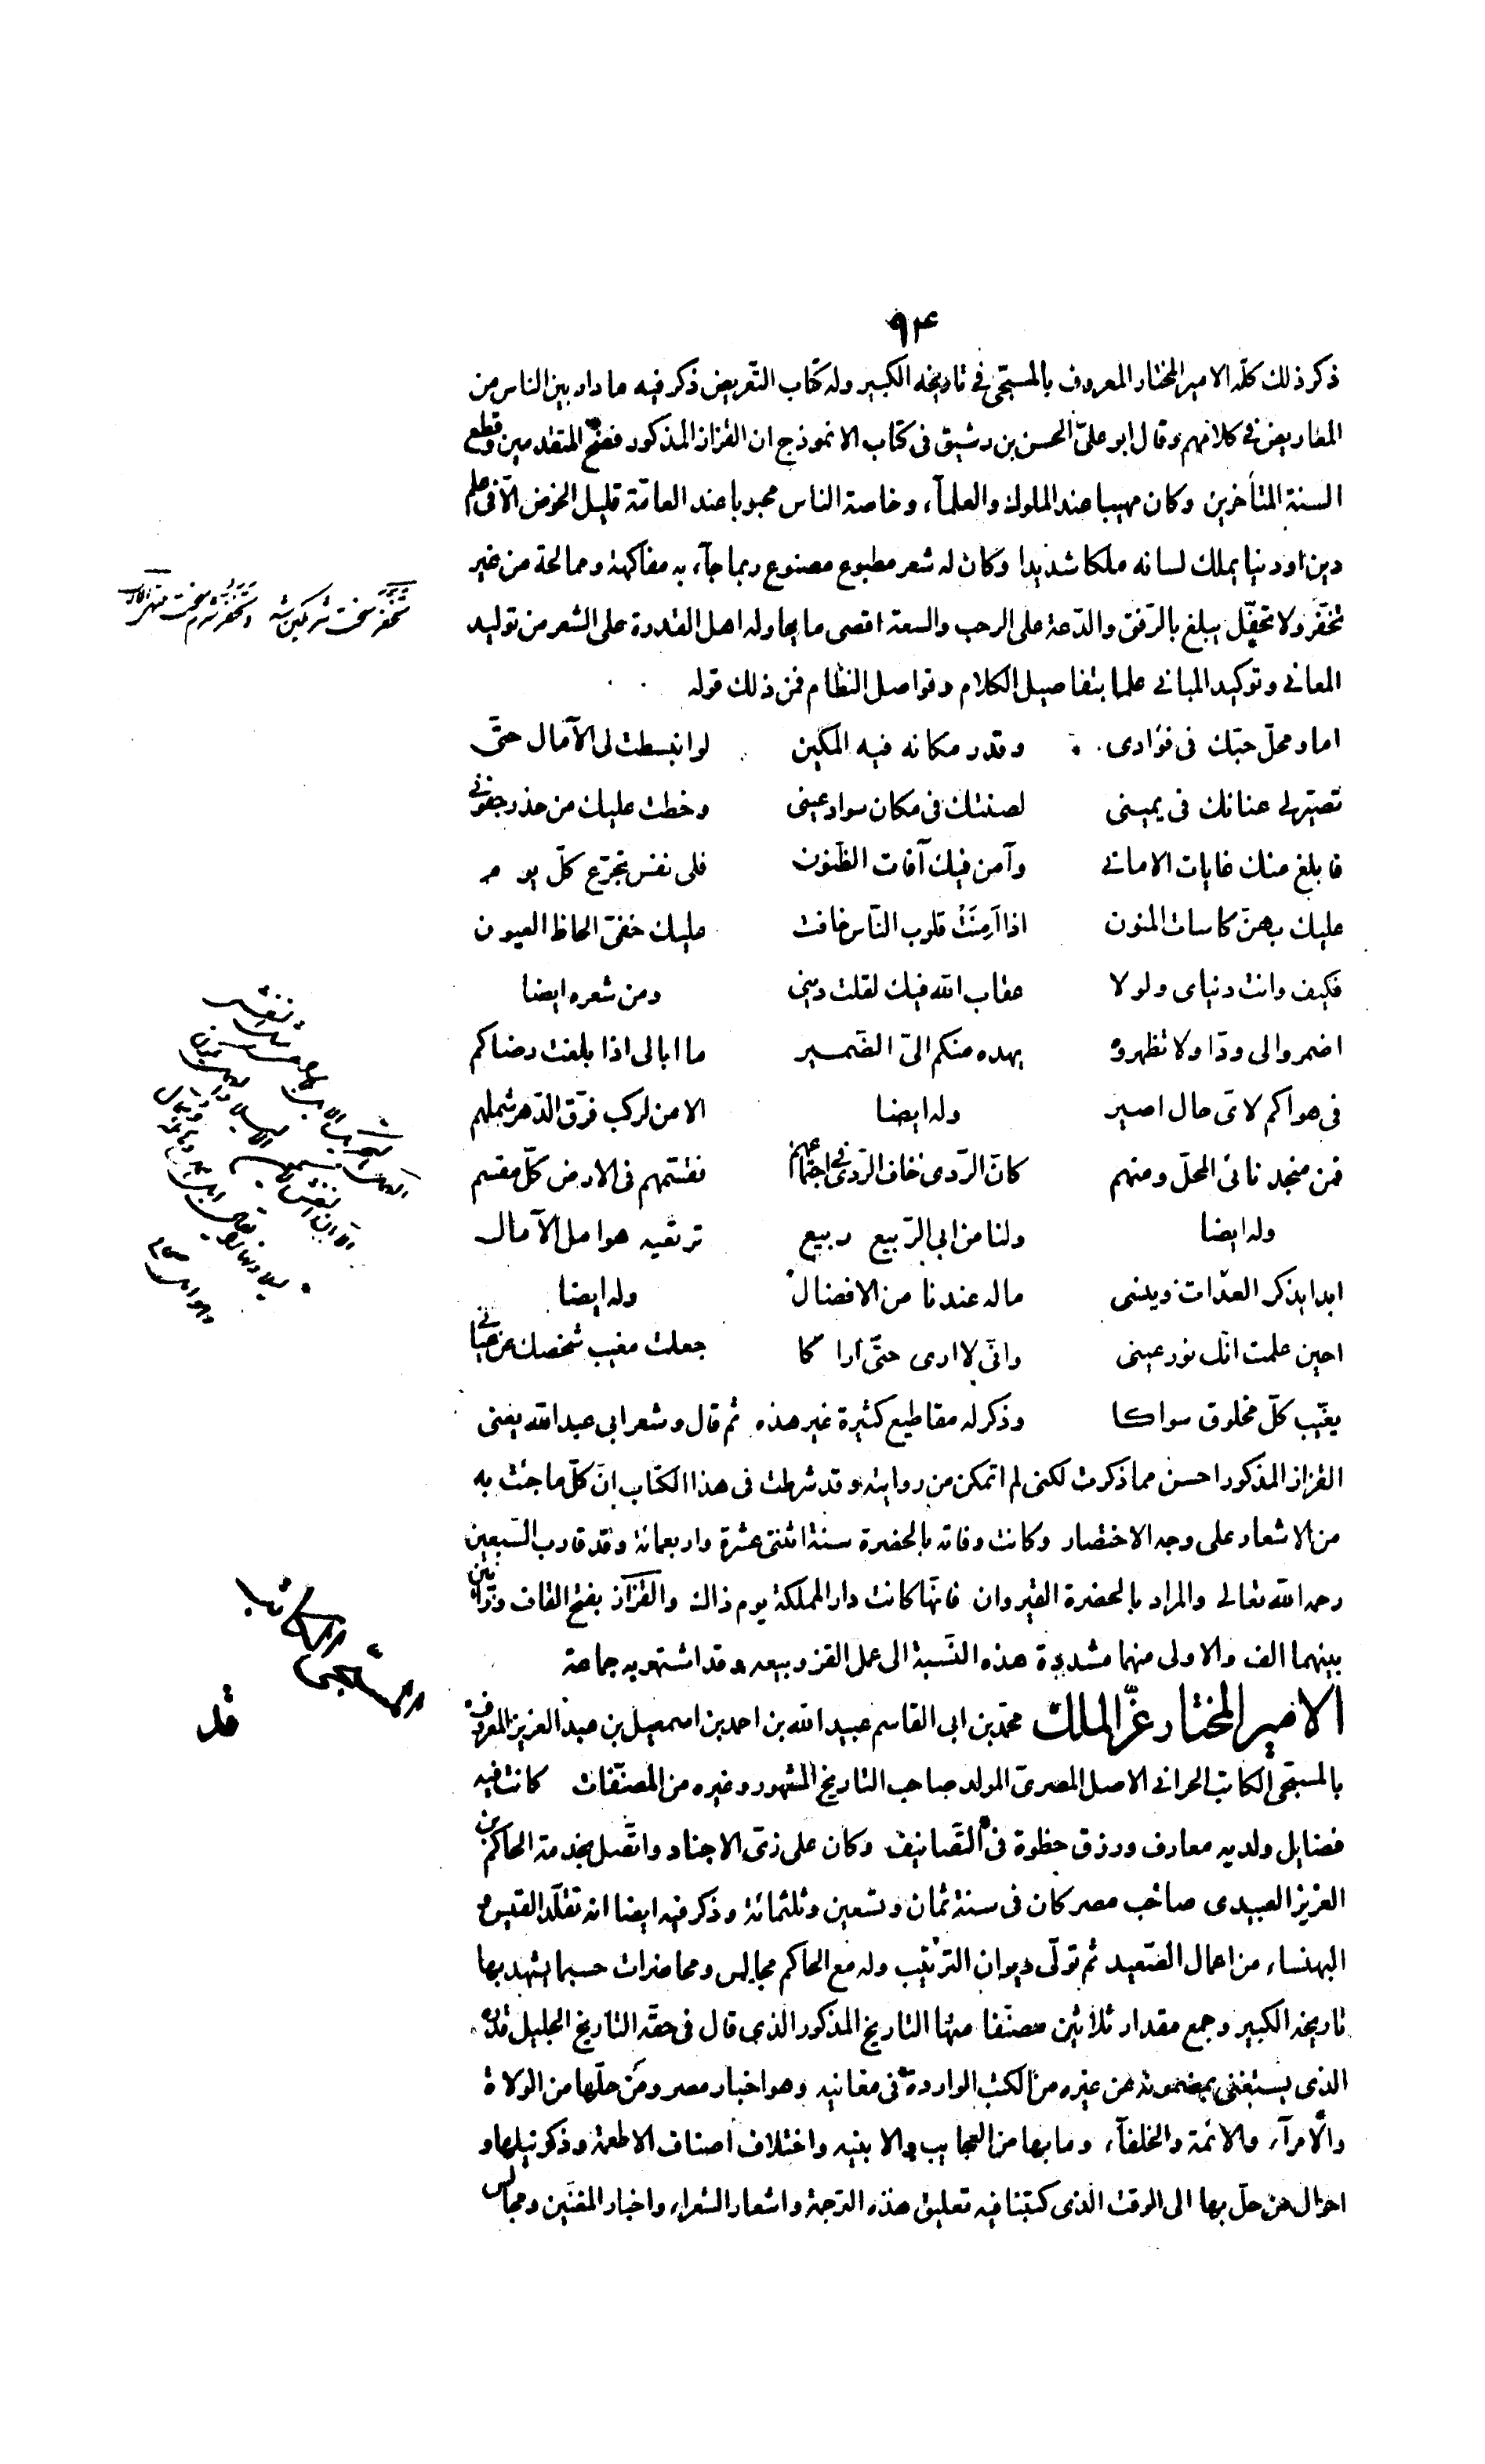 ۹۴
ذكر ذلك كلّه الامير المختار المعروف بالمسبّحى فى تاريخه الكبير وله كتاب التعريض ذكر فيه ما دار بين الناس من
المعاريض فى كلامهم وقال ابو علىّ الحسن بن رشيق فى كتاب الانموذج ان القزاز المذكور فضح المتقدمين وقطع
السنة المتأخرين وكان مهيبا عند الملوك والعلمآء وخاصة الناس محبوبا عند العامّة قليل الخوض الّا فى علم
دين او دنيا يملك لسانه ملكا شديدا وكان له شعر مطبوع مصنوع ربما جآء به مفاكهة وممالحة من غير
تحفّز ولا تحفّل يبلغ بالرّفق والدّعة على الرحب والسعة اقصى ما يحاوله اهل القدرة على الشعر من توليد
المعانى وتوكيد المبانى علما بتفاصيل الكلام وفواصل النظام فمن ذلك قوله
اما ومحلّ حبّك فى فؤادى وقدر مكانه فيه المكين لو انبسطت لى الآمال حتّى
تصيّر لى عنانك فى يمينى لصنتك فى مكان سواد عينى وخطت عليك من حذر جفونى
فابلغ منك غايات الامانى وآمن فيك آفات الظنون فلى نفس تجرّع كلّ يوم
عليك بهنّ كاسات المنون اذا اَمِنَتْ قلوب النّاس خافت عليك خفىّ الحاظ العيون
فكيف وانت دنياى ولولا عقاب الله فيك لقلت دينى ومن شعره ايضا
اضمروا لى ودّا ولا تظهروه يهده منكم الىّ الضّمير ما ابالى اذا بلغت رضاكم
فى هواكم لاىّ حال اصير وله ايضا الا من لركب فرّق الدّهر شملهم
فمن منجد نائى المحلّ ومتهم كانّ الرّدى خاف الرّدى فى اجتماعهم فقسّمهم فى الارض كلّ مقسم
وله ايضا ولنا من ابى الرّبيع ربيع ترتعيه هوامل الآمال
ابدا يذكر العدّات وينسى ما له عندنا من الافضال وله ايضا
احين علمت انّك نور عينى وانّى لا ارى حتّى اراكا جعلت مغيب شخصك عن عيانى
يغيّب كلّ مخلوق سواكا وذكر له مقاطيع كثيرة غير هذه ثم قال وشعر ابى عبد الله يعنى
القزاز المذكور احسن مما ذكرت لكنى لم اتمكن من روايته وقد شرطت فى هذا الكتاب انّ كلّ ما جئت به
من الاشعار على وجه الاختصار وكانت وفاته بالحضرة سنة اثنتى عشرة واربعمائة وقد قارب السّبعين
رحمه الله تعالى والمراد بالحضرة القيروان فانّها كانت دار المملكة يوم ذاك والقزّاز بفتح القاف وزائين
بينهما الف والاولى منهما مشددة هذه النّسبة الى عمل القز وبيعه وقد اشتهر به جماعة
الامير المختار عزّ الملك محمّد بن ابى القاسم عبيد الله بن احمد بن اسمعيل بن عبد العزيز المعروف
بالمسبّحى الكاتب الحرانى الاصل المصرىّ المولد صاحب التاريخ المشهور وغيره من المصنّفات كانت فيه
فضايل ولديه معارف ورزق حظوة فى التّصانيف وكان على زىّ الاجناد واتّصل بخدمة الحاكم بن
العزيز العبيدى صاحب مصر كان فى سنة ثمان وتسعين وثلثمائة وذكر فيه ايضا انه تقلّد القيس و
البهنساء من اعمال الصّعيد ثم تولّى ديوان الترتيب وله مع الحاكم مجالس ومحاضرات حسبما يشهد بها
تاريخه الكبير وجمع مقدار ثلاثين مصنّفا منها التاريخ المذكور الذى قال فى حقّه التاريخ الجليل قدره
الذى يستغنى بمضمونه عن غيره من الكتب الواردة فى معانيه وهو اخبار مصر ومن حلّها من الولاة
والامرآء والائمة والخلفآء وما بها من العجايب والابنيه واختلاف اصناف الاطعمة وذكر نيلها و
احوال من حلّ بها الى الوقت الذى كتبنا فيه تعليق هذه الترجمة واشعار الشعراء واخبار المغنّين ومجالس
المسبّحى الكاتب